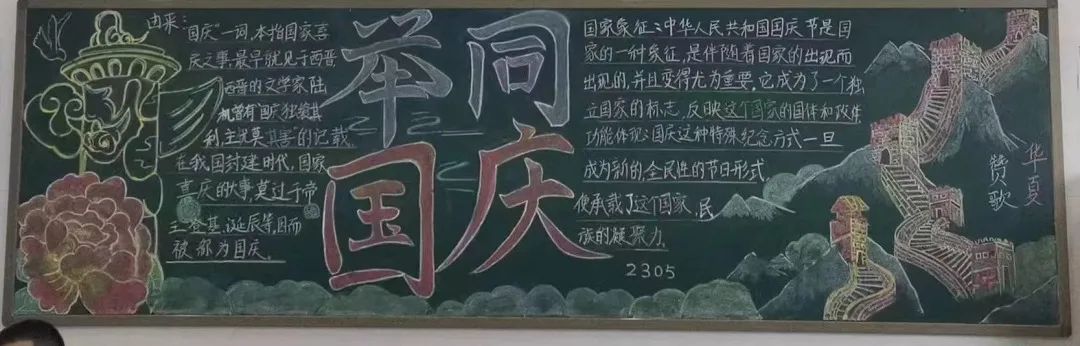 由来:
国庆"一词,本指国家喜
庆之事,最早就见于西晋
西晋的文学家陆
机曾有"国庆独飨其
利,主忧莫其害"的记载.
在我国封建时代,国家
喜庆的大事,莫过于帝
王登基,诞辰等,因而
被称为国庆.
举国同庆
国家象征:中华人民共和国国庆节是国
家的一种象征,是伴随着国家的出现而
出现的,并且变得尤为重要.它成为了一个独
立国家的标志,反映这个国家的国体和政体
功能体现:国庆这种特殊纪念方式一旦
成为新的,全民性的节日形式,
便承载了这个国家,民
族的凝聚力.
2305
华夏
赞歌